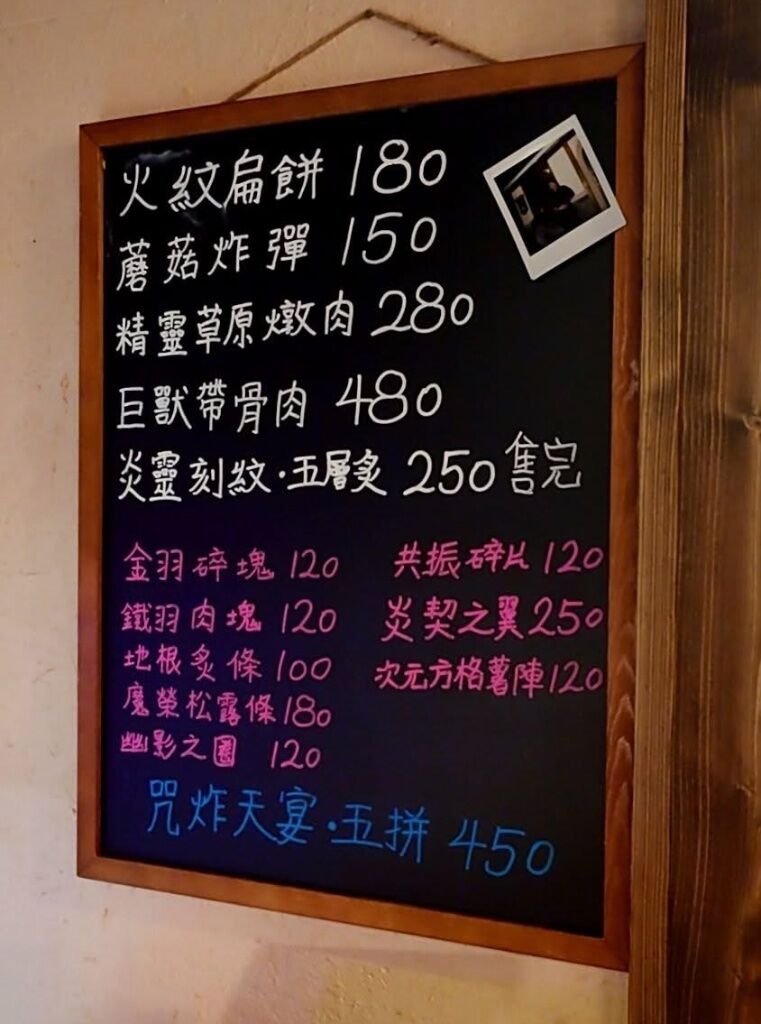 火紋扁餅 180
蘑菇炸彈 150
精靈草原燉肉 280
巨獸帶骨肉 480
炎靈刻紋·五層炙 250 售完
金羽碎塊 120
鐵羽肉塊 120
地根炙條 100
魔榮松露條 180
幽影之圈 120
共振碎片 120
炎契之翼 250
次元方格薯陣 120
咒炸天宴·五拼 450